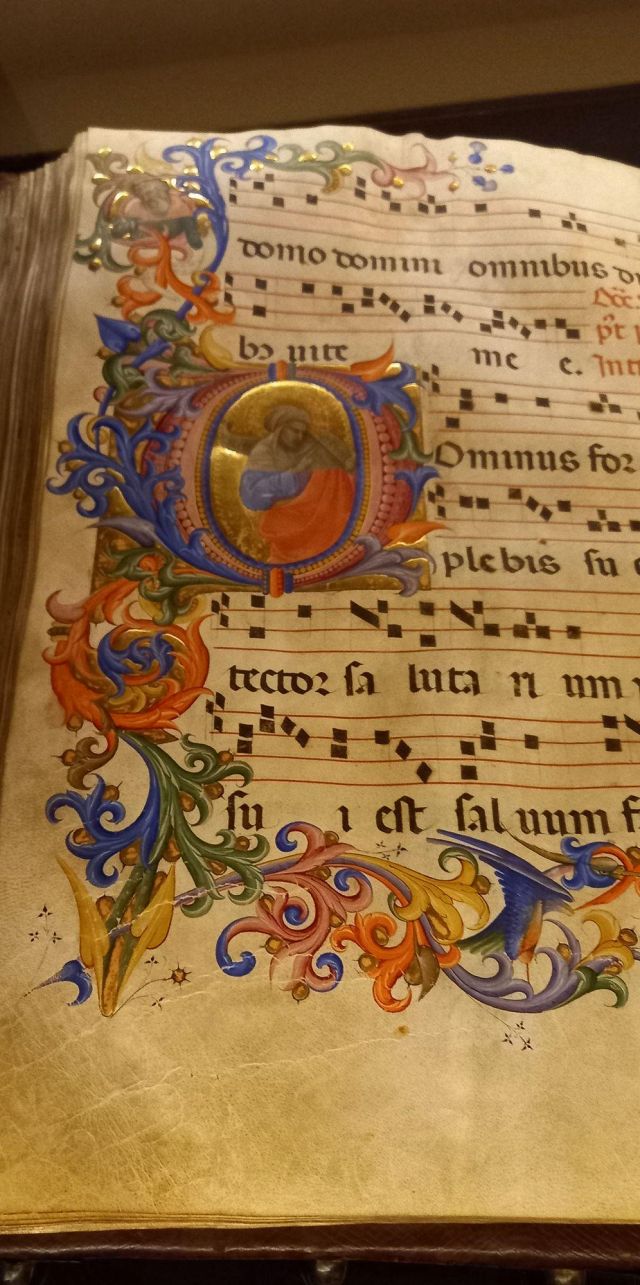 domo domini omnibus di
Occ̄
p̄t
bꝫ uite me e. Int
Ominus for
plebis su
tector sa luta ri um
su i est sal uum f